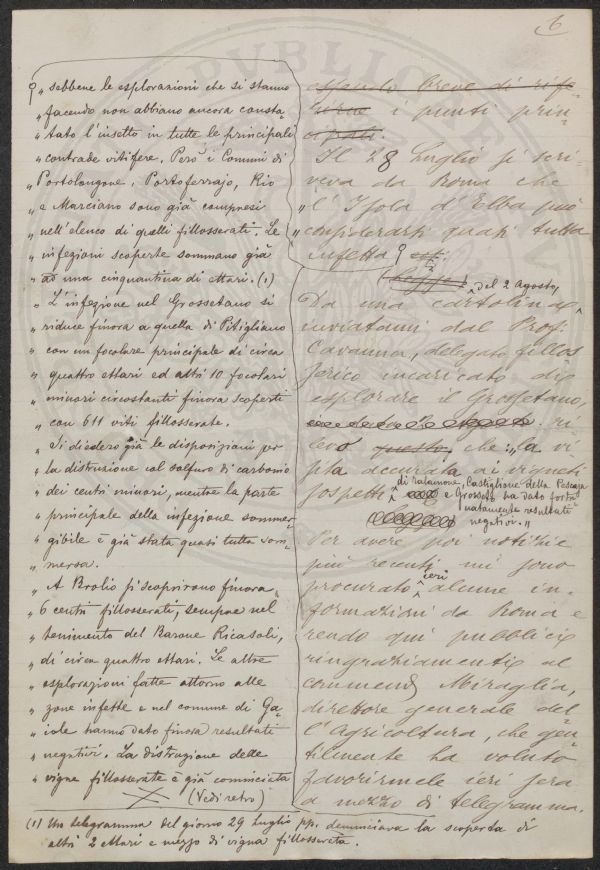 6
„ sebbene le esplorazioni che si stanno
„ facendo non abbiano ancora consta„
„ tato l'insetto in tutte le principale
„ contrade vitifere. Però i Comuni di
„ Portolongone, Portoferrajo, Rio
„ e Marciano sono già compresi
„ nell'elenco di quelli fillosserati. Le
„ infezioni scoperte sommano già
„ ad una cinquantina di ettari. (1)
„ L'infezione nel Grossetano si
„ riduce finora a quella di Pitigliano
„ con un focolare principale di circa
„ quattro ettari ed altri 10 focolari
„ minori circostanti finora scoperti
„ con 611 viti fillosserate.
„ Si diedero già le disposizioni per
„ la distruzione col solfuro di carbonio
„ dei centri minori, mentre la parte
„ principale della infezione sommer„
„ gibile è già stata quasi tutta som„
„ mersa.
„ A Brolio si scoprirono finora
„ 6 centri fillosserati, sempre nel
„ tenimento del Barone Ricasoli,
„ di circa quattro ettari. Le altre
„ esplorazioni fatte attorno alle
„ zone infette e nel comune di Ga„
„ iole hanno dato finora resultati
„ negativi. La distruzione delle
„ vigne fillosserate è già cominciata
(Vedi retro)
essendo breve di rife„
rirne i punti prin„
cipali.
Il 28 Luglio si scri„
veva da Roma che
„ l'Isola d'Elba può
„ considerarsi quasi tutta
infetta
del 2 Agosto,
Da una cartolina
inviatami dal Prof:
Cavanna, delegato fillos„
serico incaricato di
esplorare il Grossetano,
ri„
levo questo, che: „la vi„
sita accurata ai vigneti
sospetti
di Talamone, Castiglione della Pescaja
e Grosseto ha dato fortu„
natamente resultati
negativi.„
Per avere poi notizie
più recenti mi sono
procurato ieri alcune in„
formazioni da Roma e
rendo qui pubblici
ringraziamenti al
commend Miraglia,
direttore generale del„
l'Agricoltura, che gen„
tilmente ha voluto
favorirmele ieri sera
a mezzo di telegramma.
(1) Un telegramma del giorno 29 Luglio pp. denunciava la scoperta di
altri 2 ettari e mezzo di vigna fillosserata.